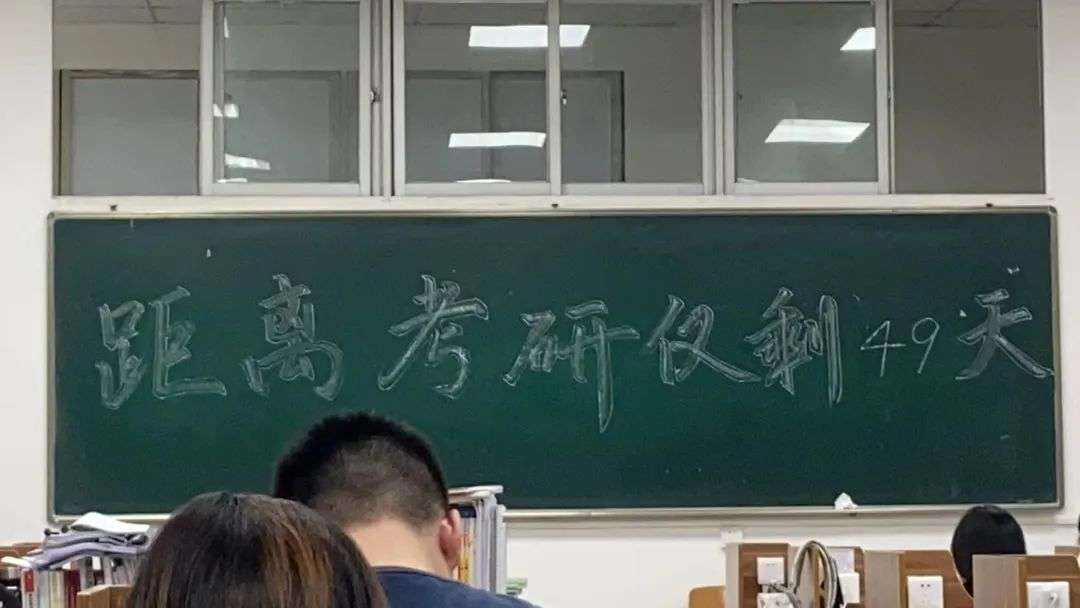 距离考研仅剩49天